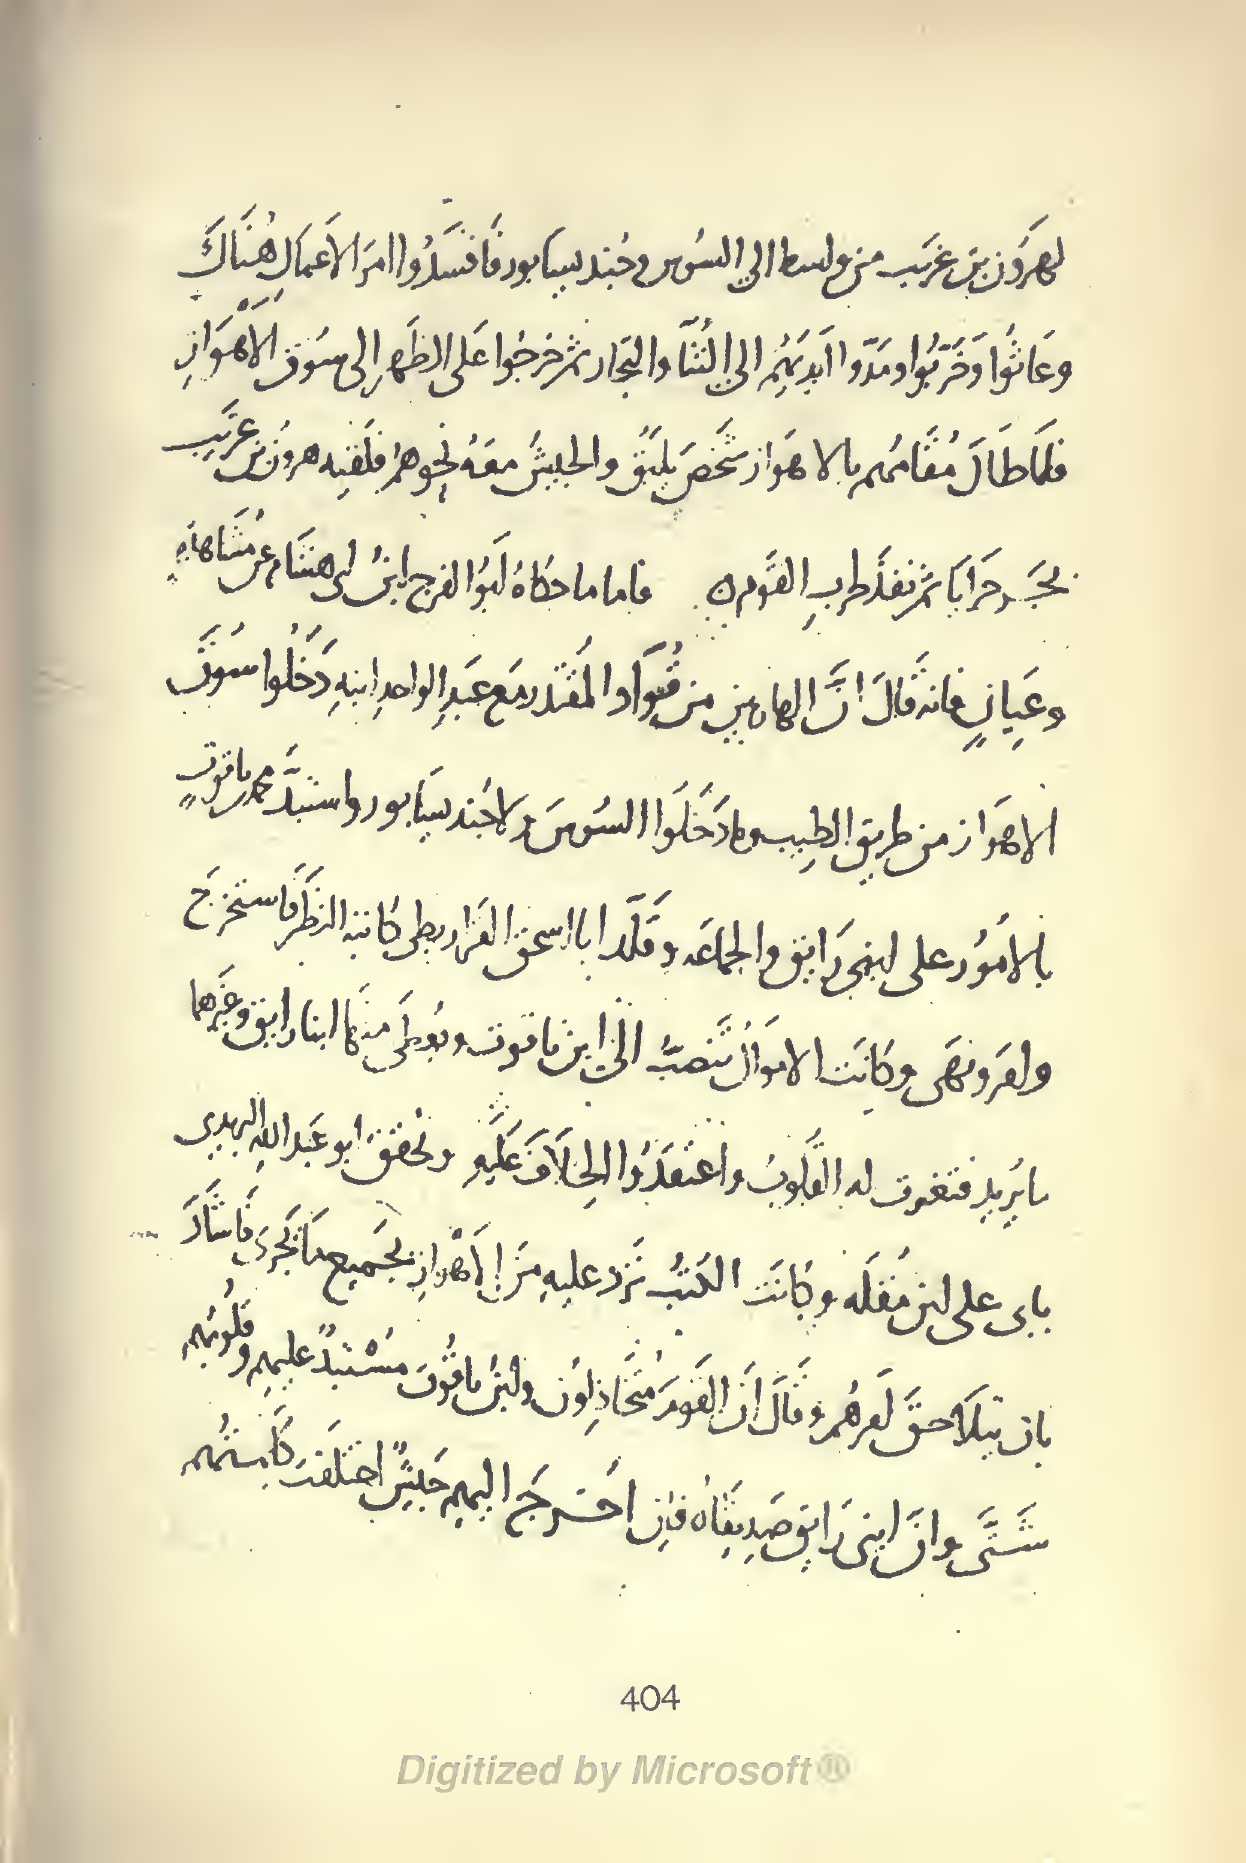 لهرون بن غريب من واسط الى السوس وجنديسابور فافسدوا امر الاعمال هناك
وعاثوا وخربوا ومدوا ايديهم الى التناء والتجار ثم خرجوا على الظهر الى سوق الاهواز
فلما طال مقامهم بالاهواز شخص يلبق والجيش معه نحوهم فلقيه هرون بن غريب
بجرجرايا ثم نفذ لحرب القوم فاما ما حكاه ابو الفرج ابن ابى هشام عن مشاهدة
وعيان فانه قال ان الهاربين من قواد المقتدر مع عبد الواحد ابنه دخلوا سوق
الاهواز من طريق الطيب وما دخلوا السوس ولا جنديسابور واستبد محمد بن ياقوت
بالامور على ابنى رايق والجماعه وقلد ابا اسحق القراريطى كاتبه النظر فاستخرج
وامر ونهى وكانت الاموال تنصب الى ابن ياقوت ويعطى منها ابنا رايق وغيرهما
ما يريد فتغيرت له القلوب واعتقدوا الخلاف عليه وتحقق ابو عبد الله البريدى
بابى على ابن مقله وكانت الكتب ترد عليه من الاهواز بجميع ما يجرى فاشار
بان يتلاحق امرهم وقال ان القوم متخاذلون وابن ياقوت مستبد عليهم وقلوبهم
شتى وان ابنى رايق صديقاه فان اخرج اليهم جيش اختلفت كلمتهم
404
Digitized by Microsoft®